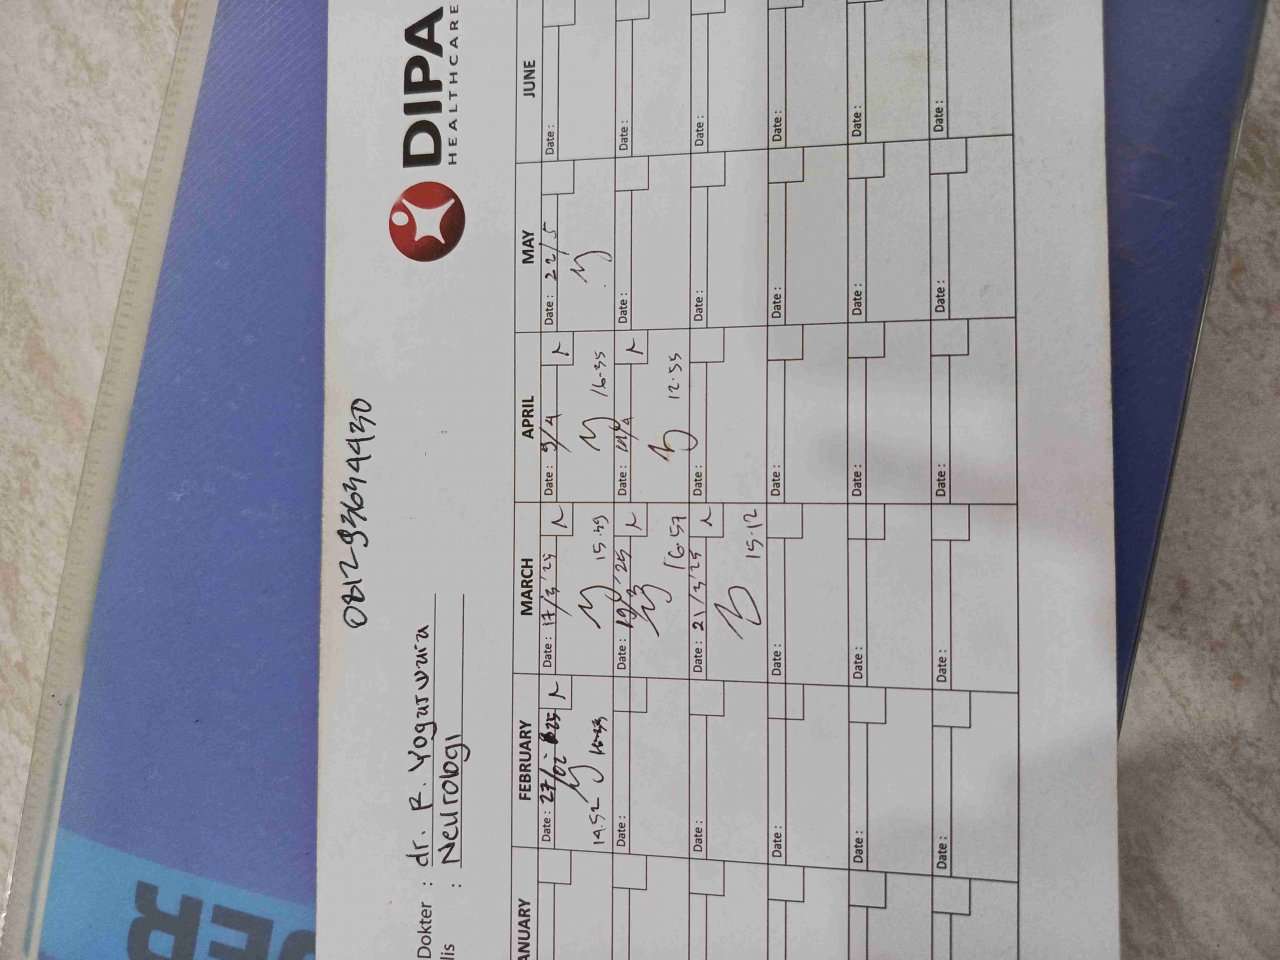 081293634430
DIPA
HEALTHCARE
Dokter : dr. R. Yogaruwira
lis : Neurologi
ANUARY FEBRUARY MARCH APRIL MAY JUNE
Date : 27/02-25 Date : 17/3'25 Date : 9/4 Date : 22/5 Date :
14.52 15.39 16-35
Date : Date : 19/3'25 Date : Date : Date :
16.57 12.55
Date : Date : 21/3'25 Date : Date : Date :
15.12
Date : Date : Date : Date : Date :
Date : Date : Date : Date : Date :
Date : Date : Date : Date : Date :
ER